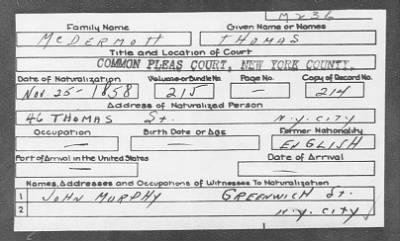 M236
Family Name Given Name or Names
McDERMOTT THOMAS
Title and Location of Court
COMMON PLEAS COURT, NEW YORK COUNTY.
Date of Naturalization Volume or Bundle No. Page No. Copy of Record No.
Nov 25-1858 215 — 214
Address of Naturalized Person
46 THOMAS St. N.Y. CITY
Occupation Birth Date or Age Former Nationality
— — ENGLISH
Port of Arrival in the United States Date of Arrival
— —
Names, Addresses and Occupations of Witnesses To Naturalization
1 JOHN MURPHY GREENWICH St.
2 N.Y. CITY